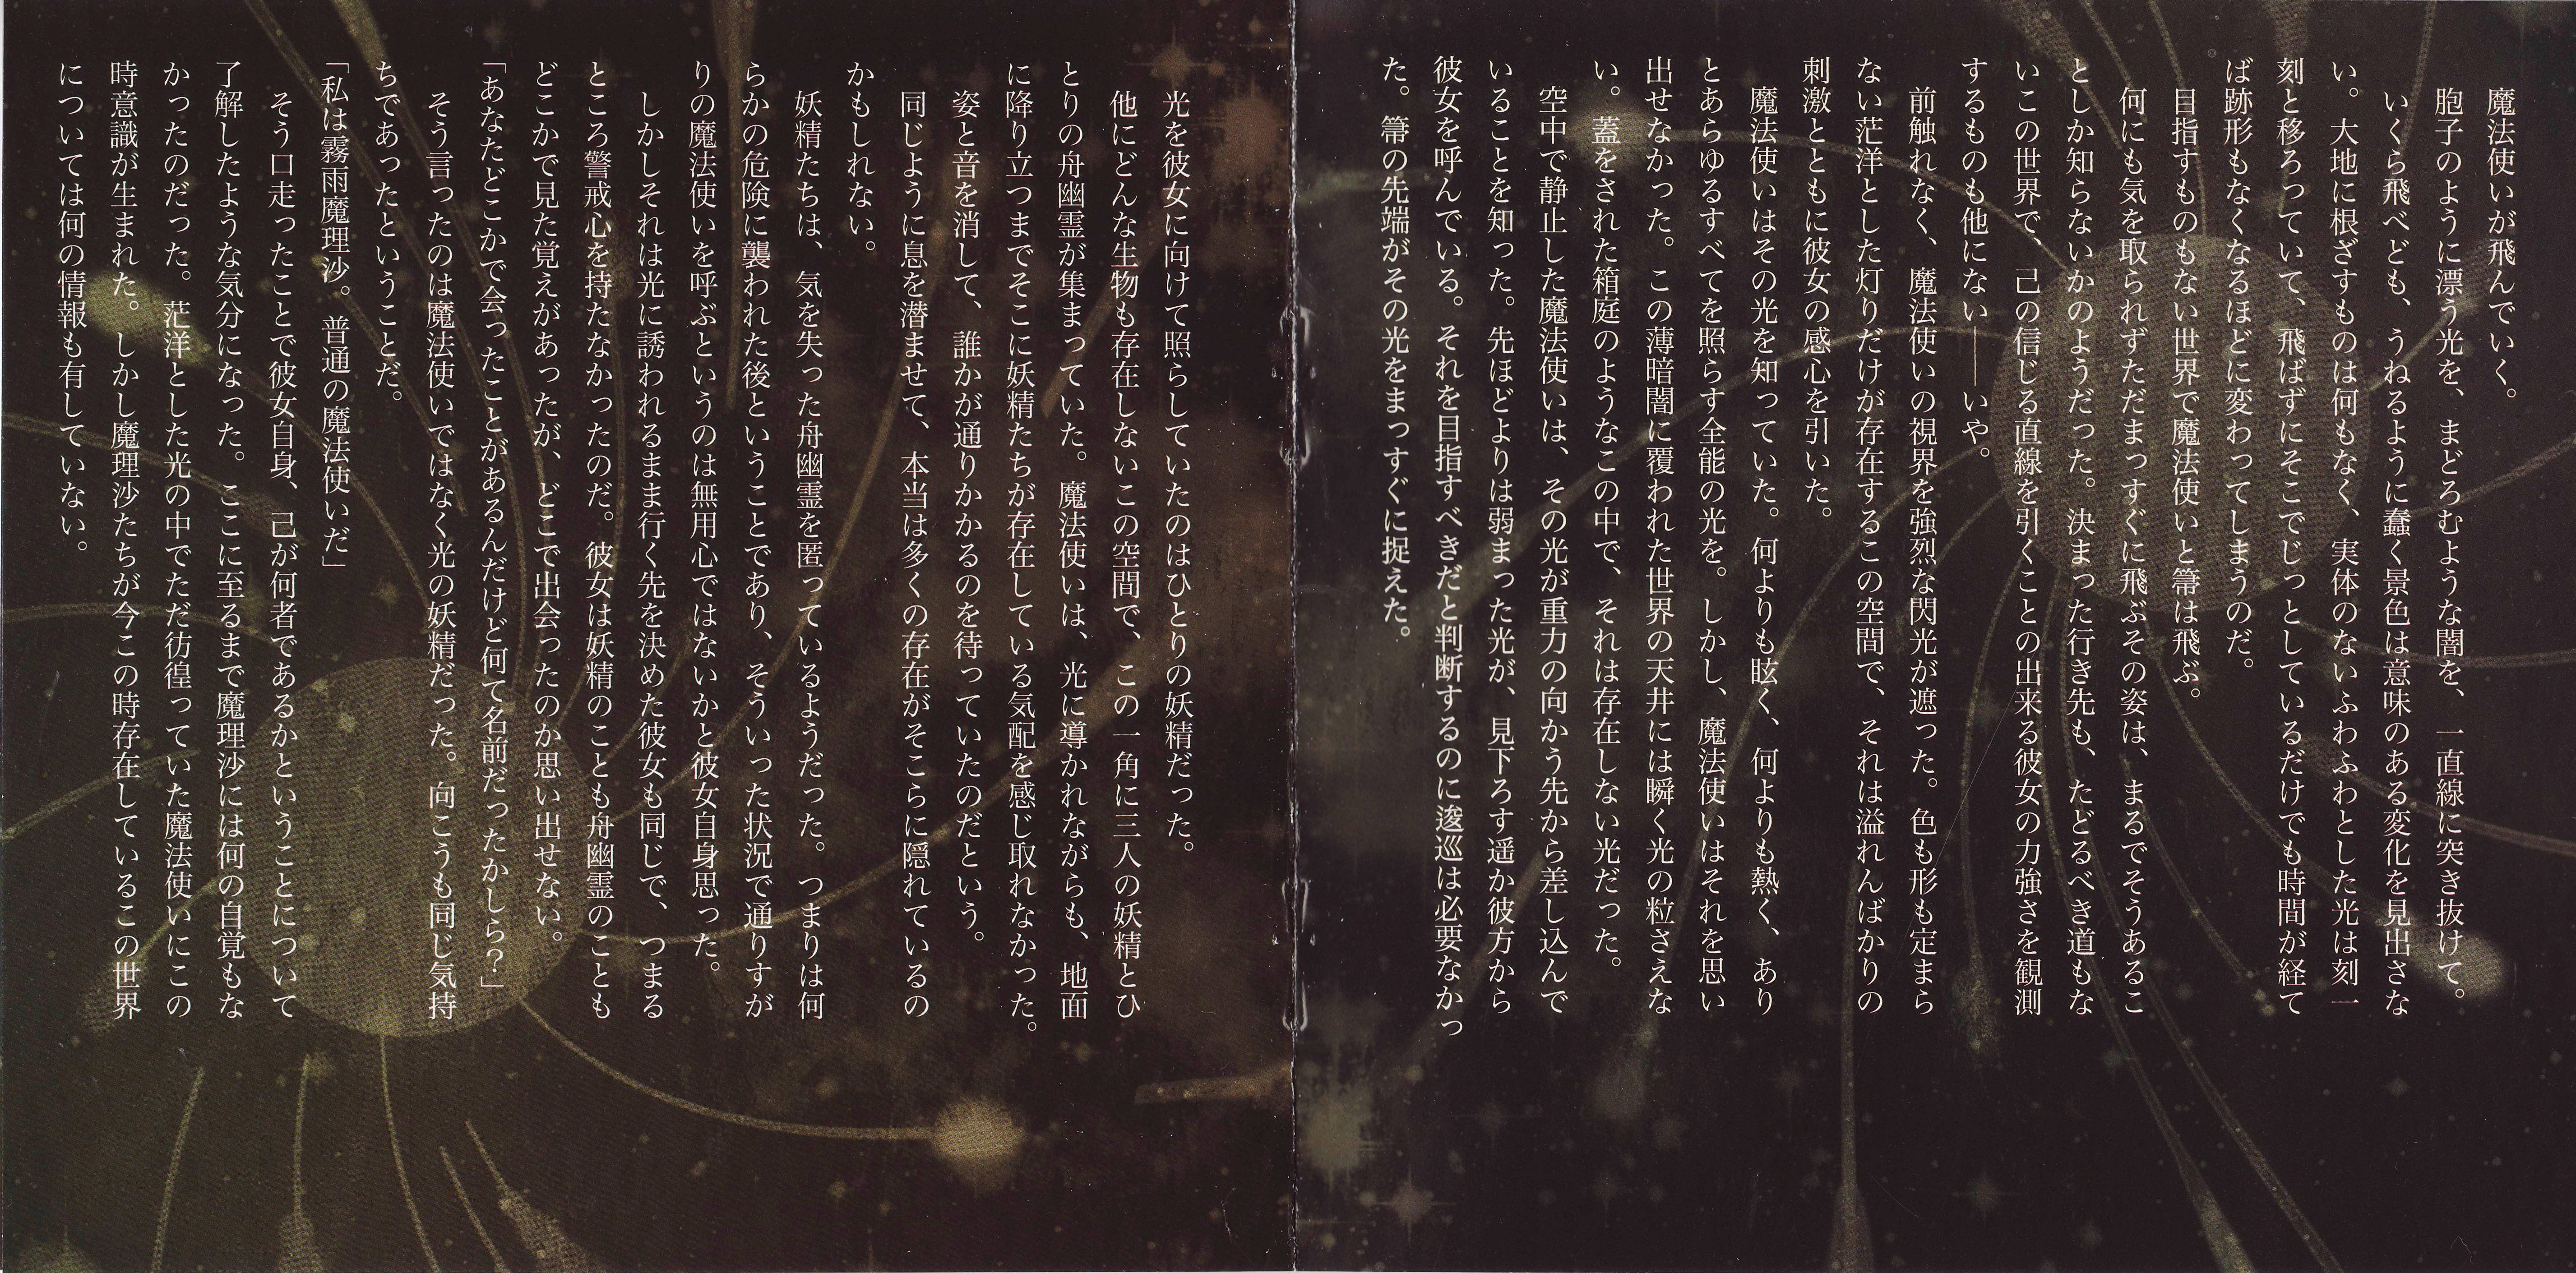 魔法使いが飛んでいく。
胞子のように漂う光を、まどろむような闇を、一直線に突き抜けて。
いくら飛べども、うねるように蠢く景色は意味のある変化を見出さな
い。大地に根ざすものは何もなく、実体のないふわふわとした光は刻一
刻と移ろっていて、飛ばずにそこでじっとしているだけでも時間が経て
ば跡形もなくなるほどに変わってしまうのだ。
目指すものもない世界で魔法使いと箒は飛ぶ。
何にも気を取られずただまっすぐに飛ぶその姿は、まるでそうあるこ
としか知らないかのようだった。決まった行き先も、たどるべき道もな
いこの世界で、己の信じる直線を引くことの出来る彼女の力強さを観測
するものも他にない――いや。
前触れなく、魔法使いの視界を強烈な閃光が遮った。色も形も定まら
ない茫洋とした灯りだけが存在するこの空間で、それは溢れんばかりの
刺激とともに彼女の感心を引いた。
魔法使いはその光を知っていた。何よりも眩く、何よりも熱く、あり
とあらゆるすべてを照らす全能の光を。しかし、魔法使いはそれを思い
出せなかった。この薄暗闇に覆われた世界の天井には瞬く光の粒さえな
い。蓋をされた箱庭のようなこの中で、それは存在しない光だった。
空中で静止した魔法使いは、その光が重力の向かう先から差し込んで
いることを知った。先ほどよりは弱まった光が、見下ろす遥か彼方から
彼女を呼んでいる。それを目指すべきだと判断するのに逡巡は必要なかっ
た。箒の先端がその光をまっすぐに捉えた。
光を彼女に向けて照らしていたのはひとりの妖精だった。
他にどんな生物も存在しないこの空間で、この一角に三人の妖精とひ
とりの舟幽霊が集まっていた。魔法使いは、光に導かれながらも、地面
に降り立つまでそこに妖精たちが存在している気配を感じ取れなかった。
姿と音を消して、誰かが通りかかるのを待っていたのだという。
同じように息を潜ませて、本当は多くの存在がそこらに隠れているの
かもしれない。
妖精たちは、気を失った舟幽霊を匿っているようだった。つまりは何
らかの危険に襲われた後ということであり、そういった状況で通りすが
りの魔法使いを呼ぶというのは無用心ではないかと彼女自身思った。
しかしそれは光に誘われるまま行く先を決めた彼女も同じで、つまる
ところ警戒心を持たなかったのだ。彼女は妖精のことも舟幽霊のことも
どこかで見た覚えがあったが、どこで出会ったのか思い出せない。
「あなたどこかで会ったことがあるんだけど何て名前だったかしら？」
そう言ったのは魔法使いではなく光の妖精だった。向こうも同じ気持
ちであったということだ。
「私は霧雨魔理沙。普通の魔法使いだ」
そう口走ったことで彼女自身、己が何者であるかということについて
了解したような気分になった。ここに至るまで魔理沙には何の自覚もな
かったのだった。茫洋とした光の中でただ彷徨っていた魔法使いにこの
時意識が生まれた。しかし魔理沙たちが今この時存在しているこの世界
については何の情報も有していない。